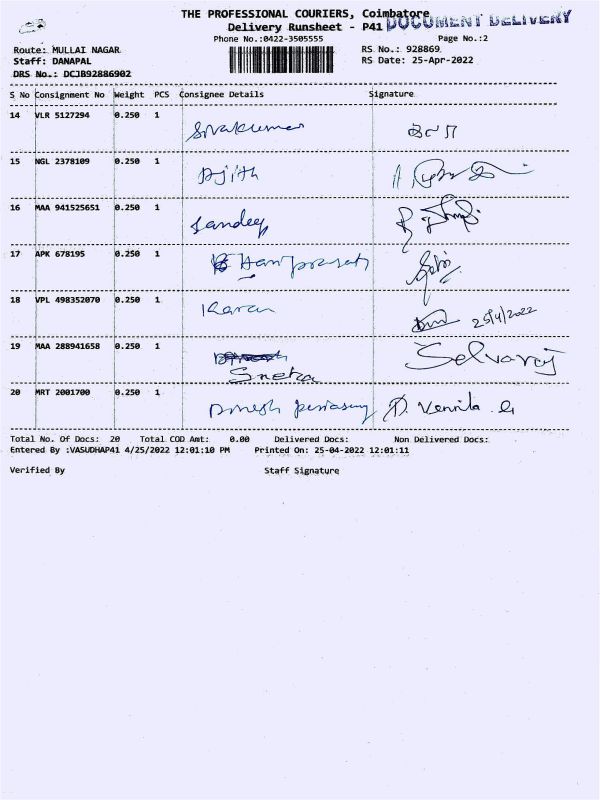 THE PROFESSIONAL COURIERS, Coimbatore
Delivery Runsheet - P41 DOCUMENT DELIVERY
Phone No.:0422-3505555 Page No.:2
Route: MULLAI NAGAR RS No.: 928869
Staff: DANAPAL RS Date: 25-Apr-2022
DRS No.: DCJB92886902
S No Consignment No Weight PCS Consignee Details Signature
14 VLR 5127294 0.250 1 Sivakumar
15 NGL 2378109 0.250 1 Ajith
16 MAA 941525651 0.250 1 Sandeep
17 APK 678195 0.250 1 Hariprasath
18 VPL 498352070 0.250 1 Karan 25/4/2022
19 MAA 288941658 0.250 1 Selvaraj
Sneka
20 MRT 2001700 0.250 1 Dinesh periasamy D. Vennila
Total No. Of Docs: 20 Total COD Amt: 0.00 Delivered Docs: Non Delivered Docs:
Entered By :VASUDHAP41 4/25/2022 12:01:10 PM Printed On: 25-04-2022 12:01:11
Verified By Staff Signature